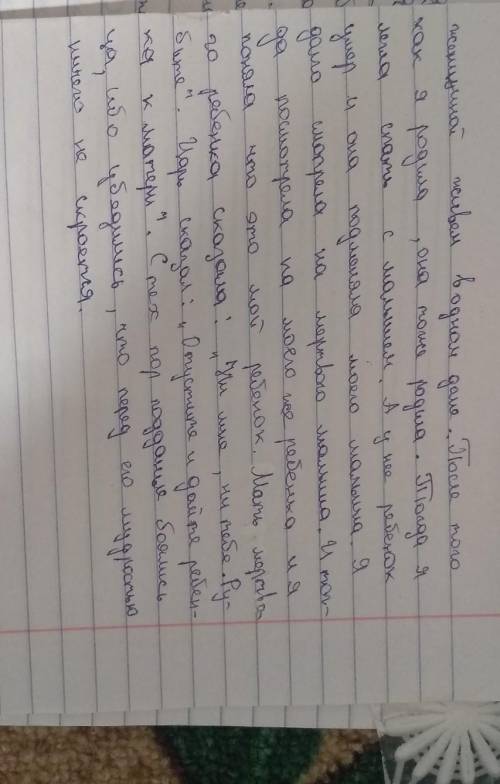 женщиной живем в одном доме. После того
как я родила, она тоже родила. Тогда я
легла спать с малышем. А у нее ребенок
умер и она подменяла моего малыша. Я
дало смотрела на мертвого малыша. И ког-
да посмотрела на моего же ребенка и я
поняла что это мой ребенок. Мать мертва-
го ребенка сказала: „Ни мне, ни тебе. Ру-
бите". Царь сказал: „Отпустите и дайте ребен-
ка к матери". С тех пор подданые боялись
ца, ибо убедились, что перед его мудростью
ничего не скроется.